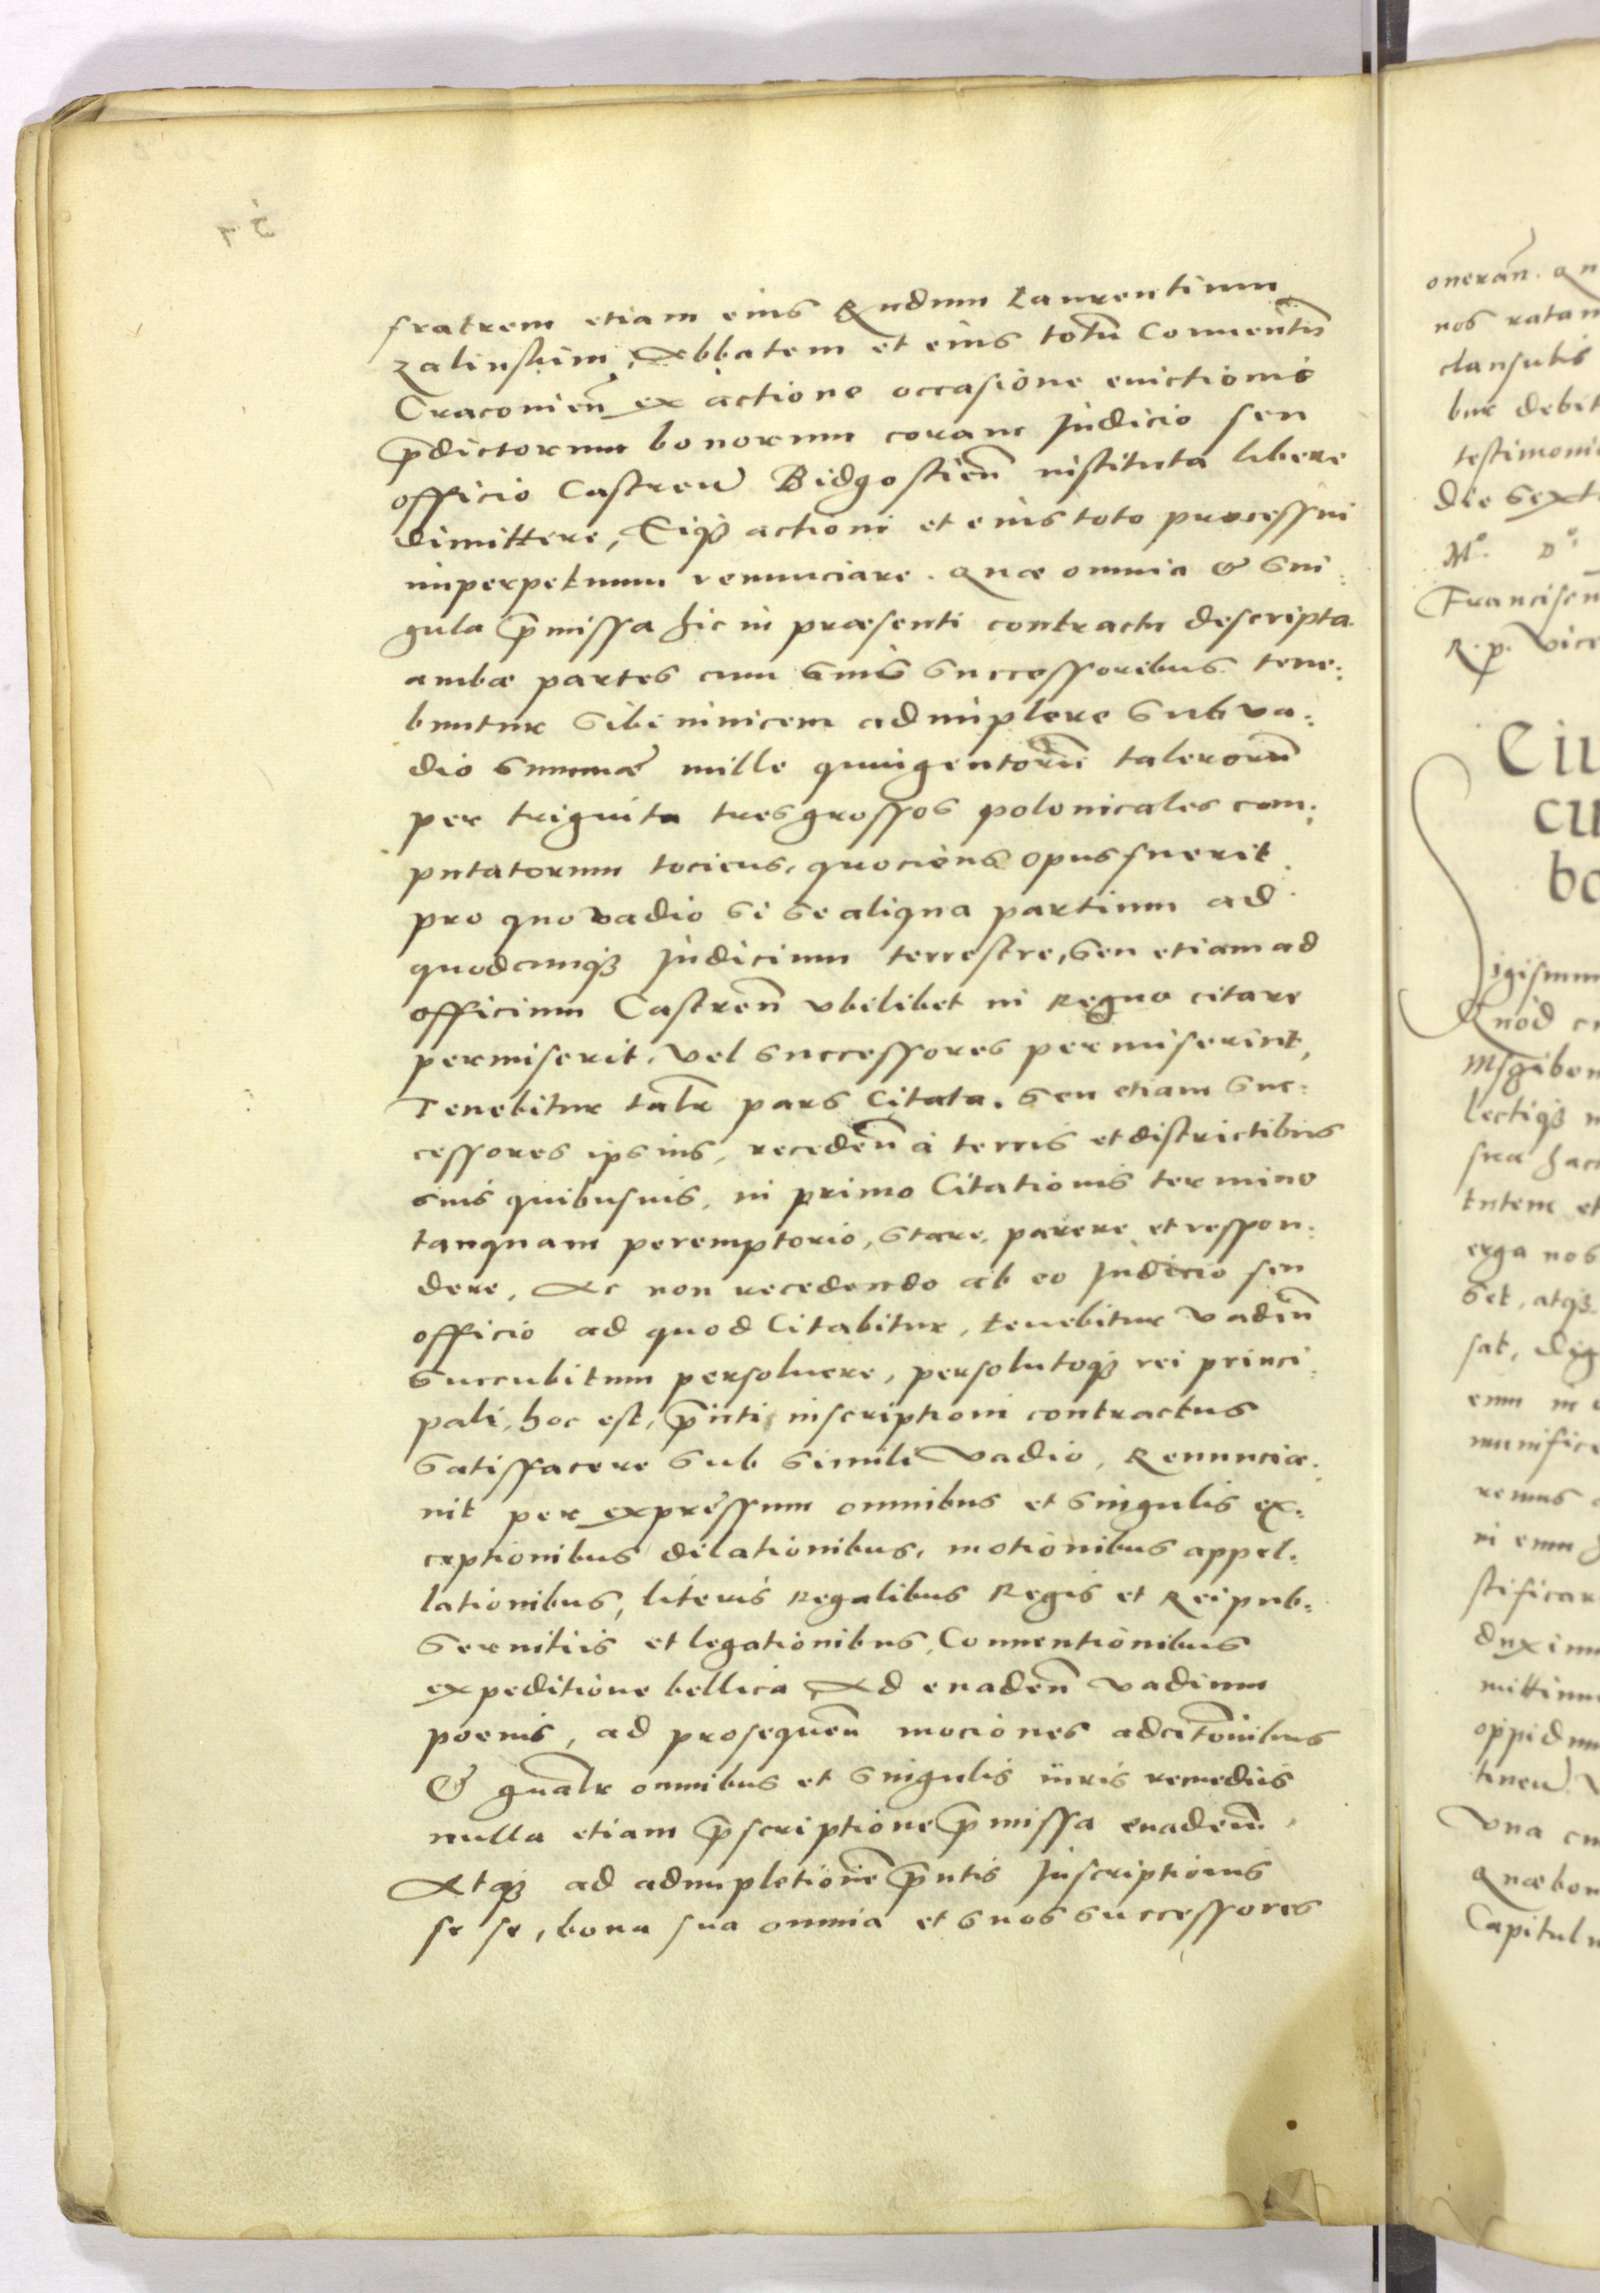 fratrem etiam eius Rndum Laurentium
zalinskim, Abbatem et eius totũ Conuentũ
Craconień ex actione occasione euictionis
p̃dictorum bonorum coram Iudicio seu
officio Castreñ Bidgostień instituta libere
dimittere, Eiqȝ actioni et eius toto processui
imperpetuum renunciare. Quæ omnia & sin:
gula p̃missa hic in præsenti contractu descripta
ambæ partes cum suis successoribus tene:
buntur sibi inuicem adimplere sub va:
dio summæ mille quingentorũ talerorũ
per triginta tres grossos polonicales com:
putatorum tociens, quociens opus fuerit
pro quo vadio si se aliqua partium ad
quodcunqȝ Iudicium terrestre, seu etiam ad
officium Castreñ vbilibet in Regno citare
permiserit, vel successores permiserint,
Tenebitur talr̃ pars Citata, seu etiam suc:
cessores ipsius, recedeñ à terris et districtibus
suis quibusuis, in primo Citationis termino
tanquam peremptorio, stare, parere et respon:
dere, Ac non recedendo ab eo Iudicio seu
officio ad quod Citabitur, tenebitur vadiũ
succubitum persoluere, persolutoqȝ rei princi:
pali, hoc est, p̃nti inscriptioni contractus
satisfacere sub simili vadio, Renuncia:
uit per expressum omnibus et singulis ex:
ceptionibus dilationibus, motionibus appel:
lationibus, literis Regalibus Regis et Reipub:
seruitiis et legationibus, Conuentionibus
expeditione bellica, Ad euadeñ vadium
poenis, ad prosequeñ mociones adcitõnibus
& gñalr omnibus et singulis iuris remediis
nulla etiam p̃scriptione p̃missa euadeñ.
Atqȝ ad adimpletionẽ p̃ntis Inscriptionis
se se, bona sua omnia et suos successores
onerañ. Qu
nos ratam
clausulis
bur debit
testimoni
die sexto
Mº. Dº.
R. p. Vice
Eiu
cu
bo
igismun
Quod cu
sua hac
erga nos
set, atqȝ
sat, dig
munifice
remus
stificar
duximu
mittimu
oppidum
Vna cu
Quæ bon
Capitulu